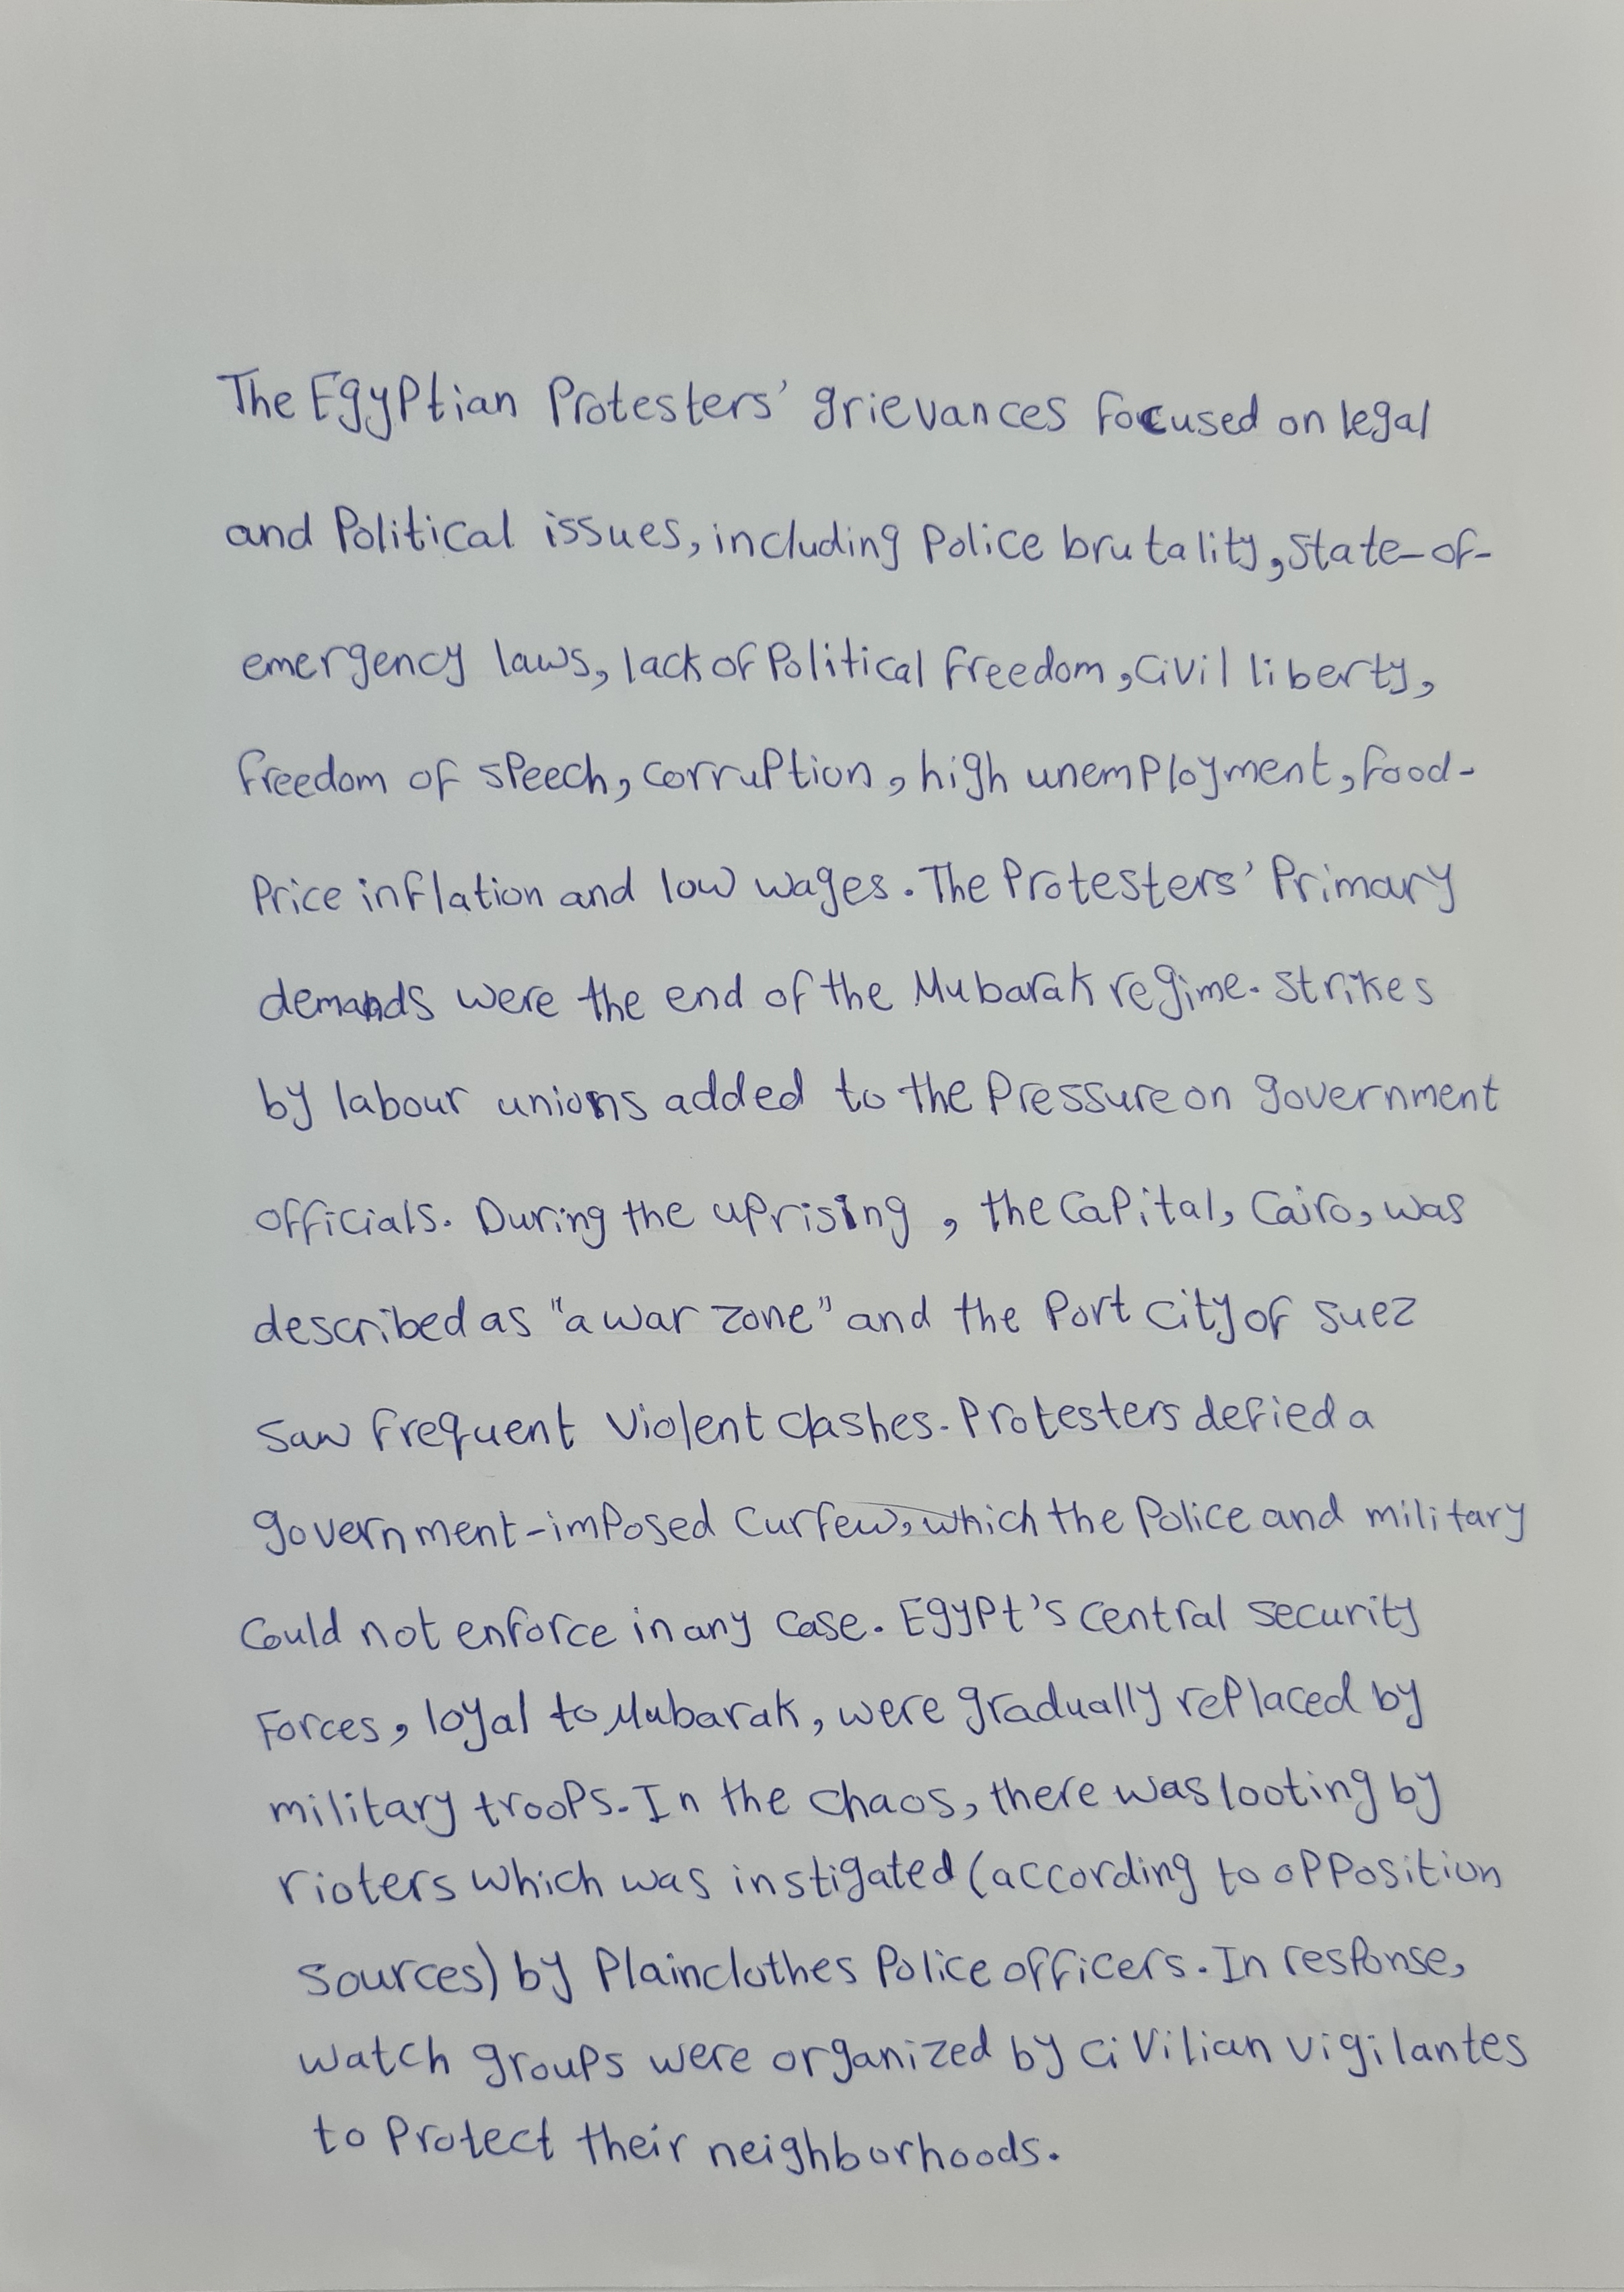 The Egyptian Protesters' grievances focused on legal
and Political issues, including Police brutality, State-of-
emergency laws, lack of Political freedom, Civil liberty,
freedom of speech, corruption, high unemployment, food-
Price inflation and low wages. The Protesters' Primary
demands were the end of the Mubarak regime. Strikes
by labour unions added to the Pressure on government
officials. During the uprising, the Capital, Cairo, was
described as "a war zone" and the Port City of Suez
saw frequent violent clashes. Protesters defied a
government-imposed Curfew, which the Police and military
Could not enforce in any case. Egypt's central security
Forces, loyal to Mubarak, were gradually replaced by
military troops. In the chaos, there was looting by
rioters which was instigated (according to opposition
sources) by Plainclothes Police officers. In response,
watch groups were organized by civilian vigilantes
to Protect their neighborhoods.